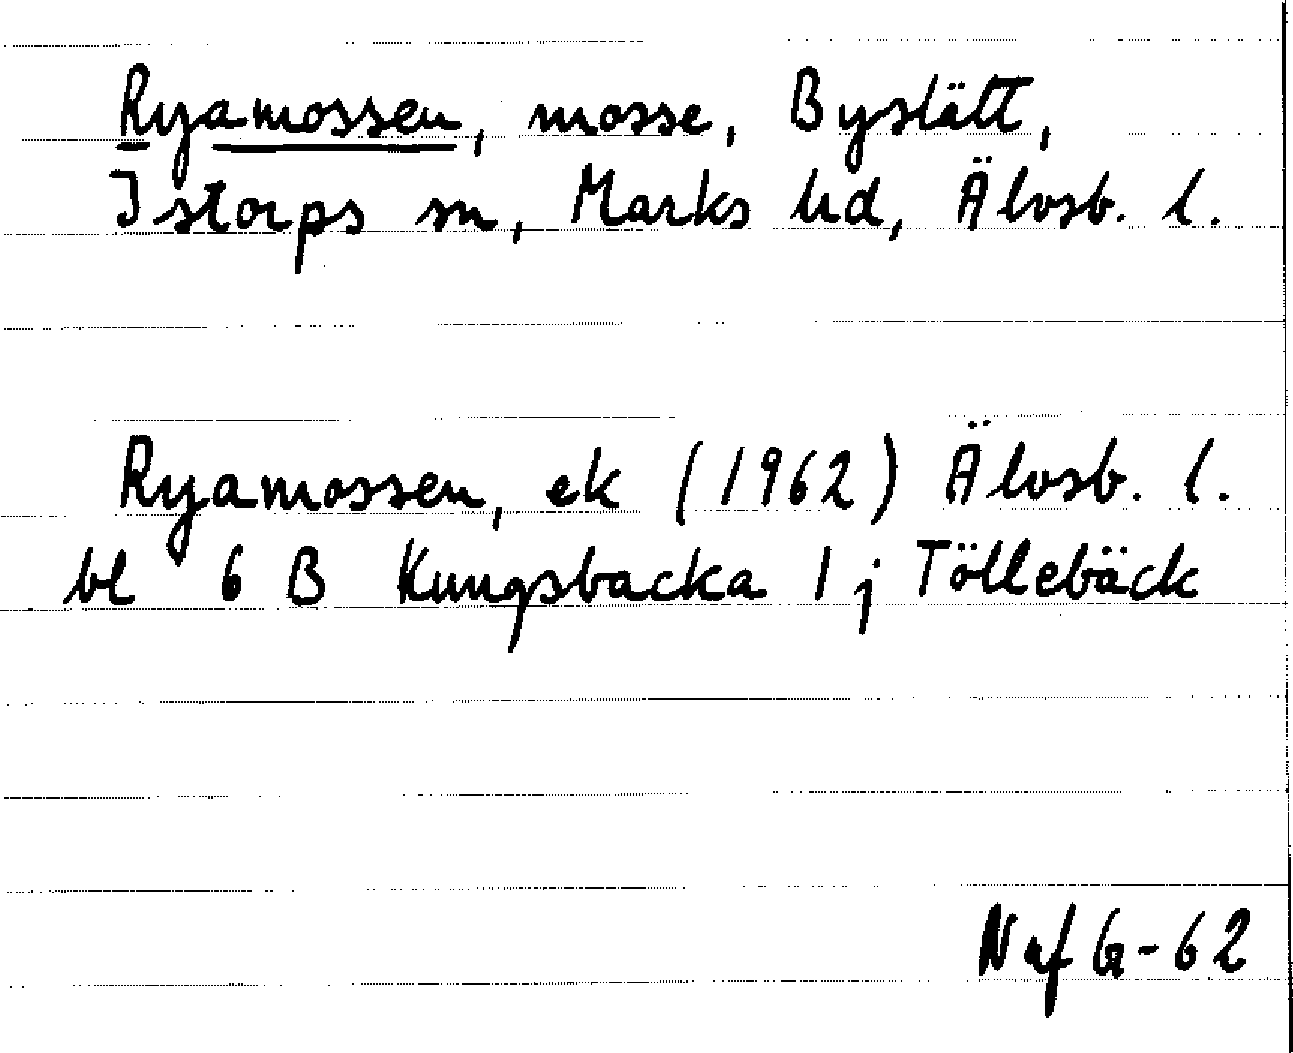 Ryamossen, mosse, Byslätt,
Istorps sn, Marks hd, Älvsb. l.
Ryamossen, ek (1962) Älvsb. l.
bl 6 B Kungsbacka 1 j Töllebäck
NafG-62